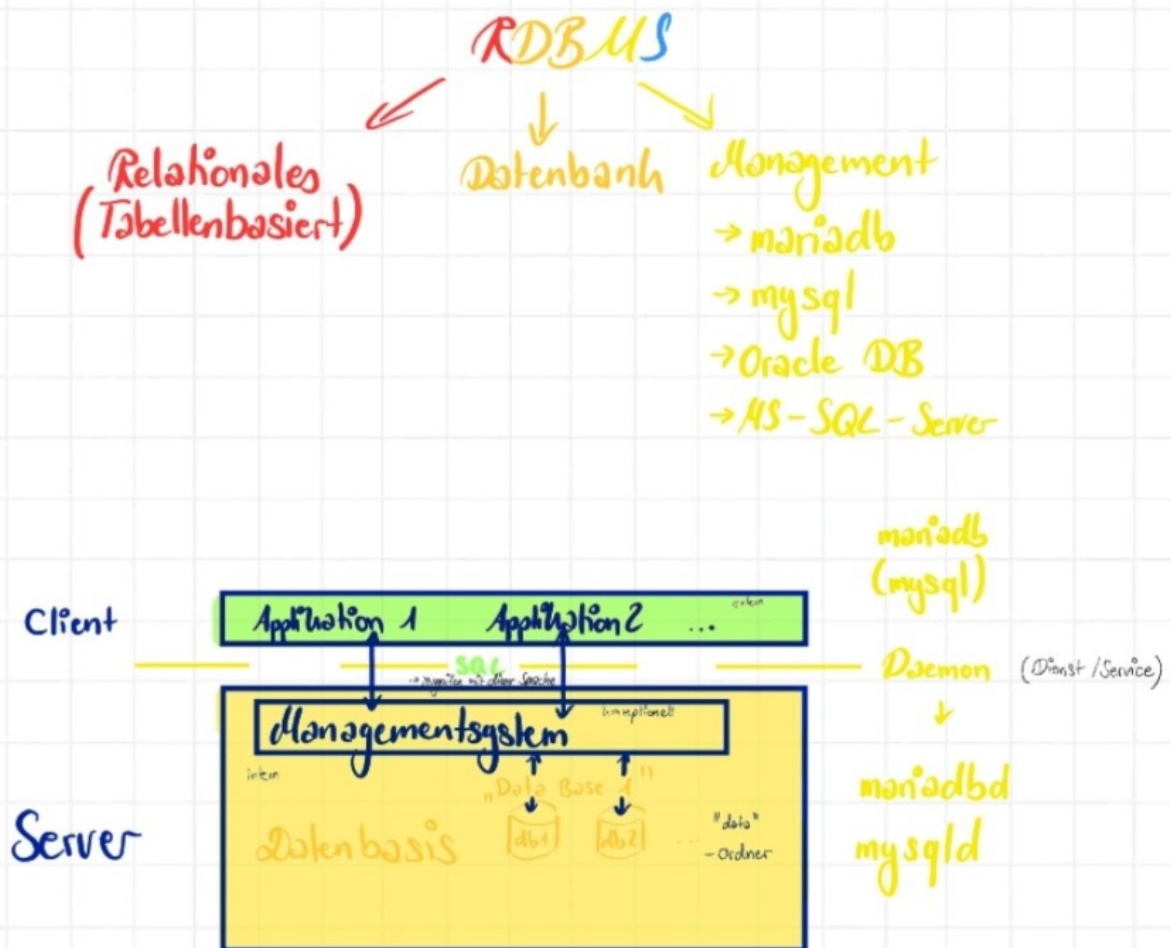 RDBMS
Relationales
(Tabellenbasiert)
Datenbank
Management
→ mariadb
→ mysql
→ Oracle DB
→ MS-SQL-Server
mariadb
(mysql)
Client
Applikation 1 Applikation 2 ...
extern
SQL
mit dieser Sprache
Daemon (Dienst/Service)
Managementsystem
konzeptionell
intern
„Data Base 1"
mariadbd
Server
Datenbasis
db1 db2 ...
"data"
-Ordner
mysqld